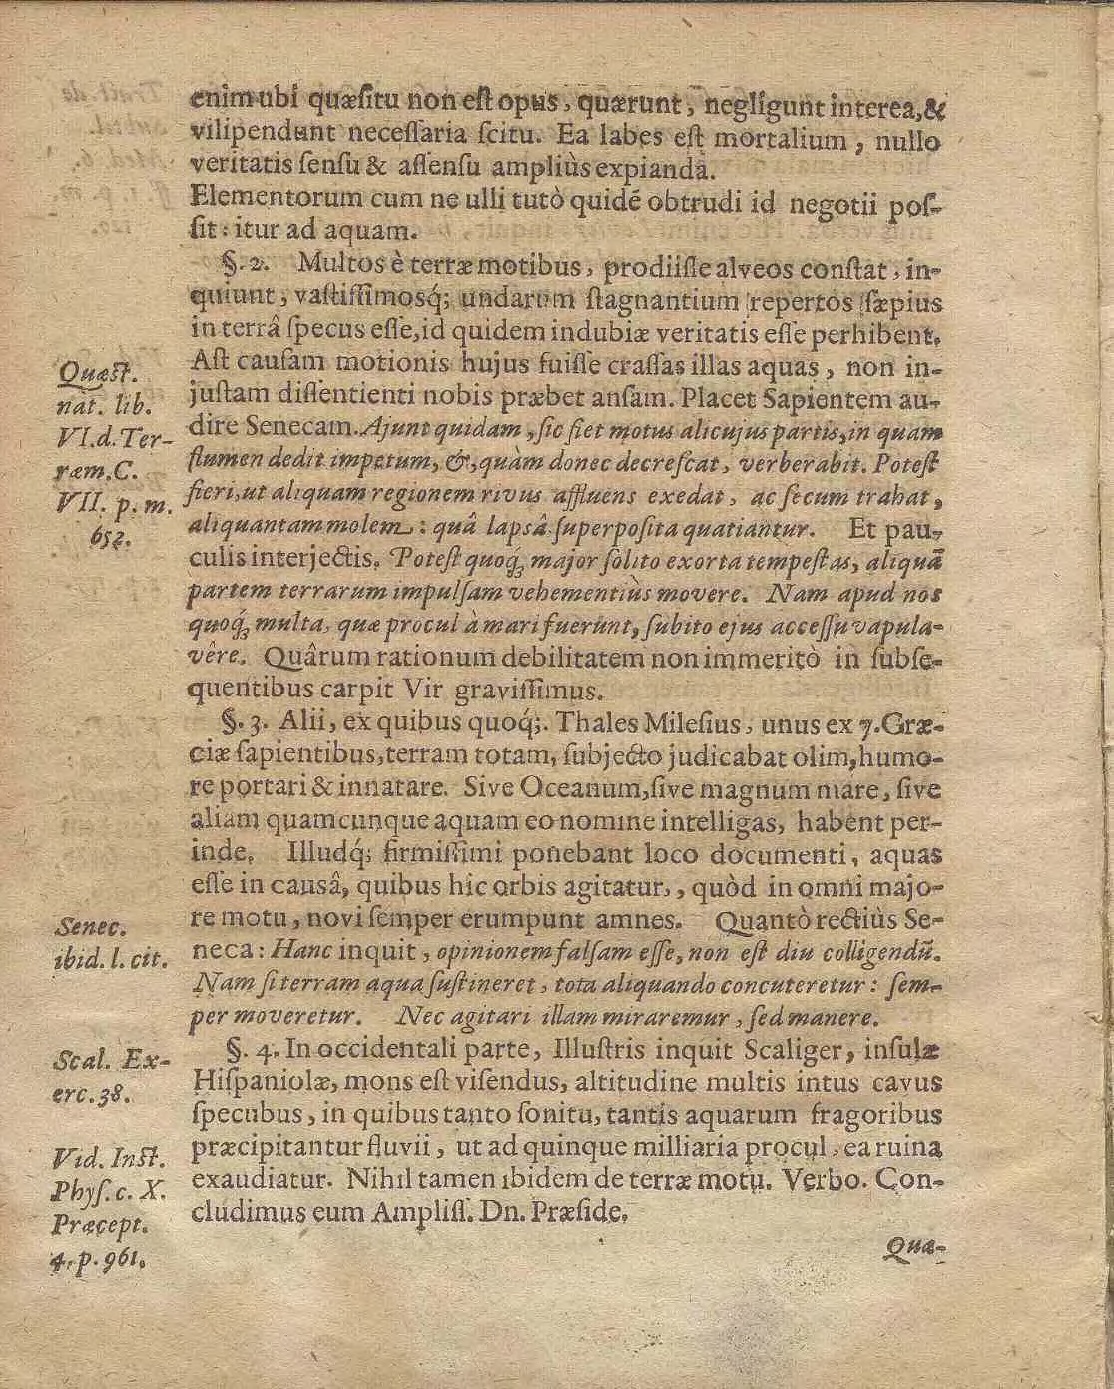 enim ubi quæsitu non est opus, quærunt, negligunt interea, &
vilipendunt necessaria scitu. Ea labes est mortalium, nullo
veritatis sensu & assensu ampliùs expianda.
Elementorum cum ne ulli tutò quidẽ obtrudi id negotii pos-
sit: itur ad aquam.
§. 2. Multos è terræ motibus, prodiisse alveos constat, in-
quiunt, vastissimosq́; undarum stagnantium repertos sæpius
in terrâ specus esse, id quidem indubiæ veritatis esse perhibent.
Ast causam motionis hujus fuisse crassas illas aquas, non in-
justam dissentienti nobis præbet ansam. Placet Sapientem au-
dire Senecam. Ajunt quidam, sic fiet motus alicujus partis, in quam
flumen dedit impetum, &, quàm donec decrescat, verberabit. Potest
fieri, ut aliquam regionem rivus affluens exedat, ac secum trahat,
aliquantam molem: quâ lapsâ superposita quatiantur. Et pau-
culis interjectis. Potest quoq́; major solito exorta tempestas, aliquã
partem terrarum impulsam vehementiùs movere. Nam apud nos
quoq́; multa, quæ procul à mari fuerunt, subito ejus accessu vapula-
vêre. Quârum rationum debilitatem non immeritò in subse-
quentibus carpit Vir gravissimus.
§. 3. Alii, ex quibus quoq́;. Thales Milesius, unus ex 7. Græ-
ciæ sapientibus, terram totam, subjecto judicabat olim, humo-
re portari & innatare. Sive Oceanum, sive magnum mare, sive
aliam quamcunque aquam eo nomine intelligas, habent per-
inde. Illudq́; firmissimi ponebant loco documenti, aquas
esse in causâ, quibus hic orbis agitatur,, quòd in omni majo-
re motu, novi semper erumpunt amnes. Quantò rectiùs Se-
neca: Hanc inquit, opinionem falsam esse, non est diu colligendũ.
Nam si terram aqua sustineret, tota aliquando concuteretur: sem-
per moveretur. Nec agitari illam miraremur, sed manere.
§. 4. In occidentali parte, Illustris inquit Scaliger, insulæ
Hispaniolæ, mons est visendus, altitudine multis intus cavus
specubus, in quibus tanto sonitu, tantis aquarum fragoribus
præcipitantur fluvii, ut ad quinque milliaria procul, ea ruina
exaudiatur. Nihil tamen ibidem de terræ motu. Verbo. Con-
cludimus cum Ampliss. Dn. Præside.
Quæ-
Quæst.
nat. lib.
VI. d. Ter-
ræm. C.
VII. p. m.
652.
Senec.
ibid. l. cit.
Scal. Ex-
erc. 38.
Vid. Inst.
Phys. c. X.
Præcept.
4. p. 961.